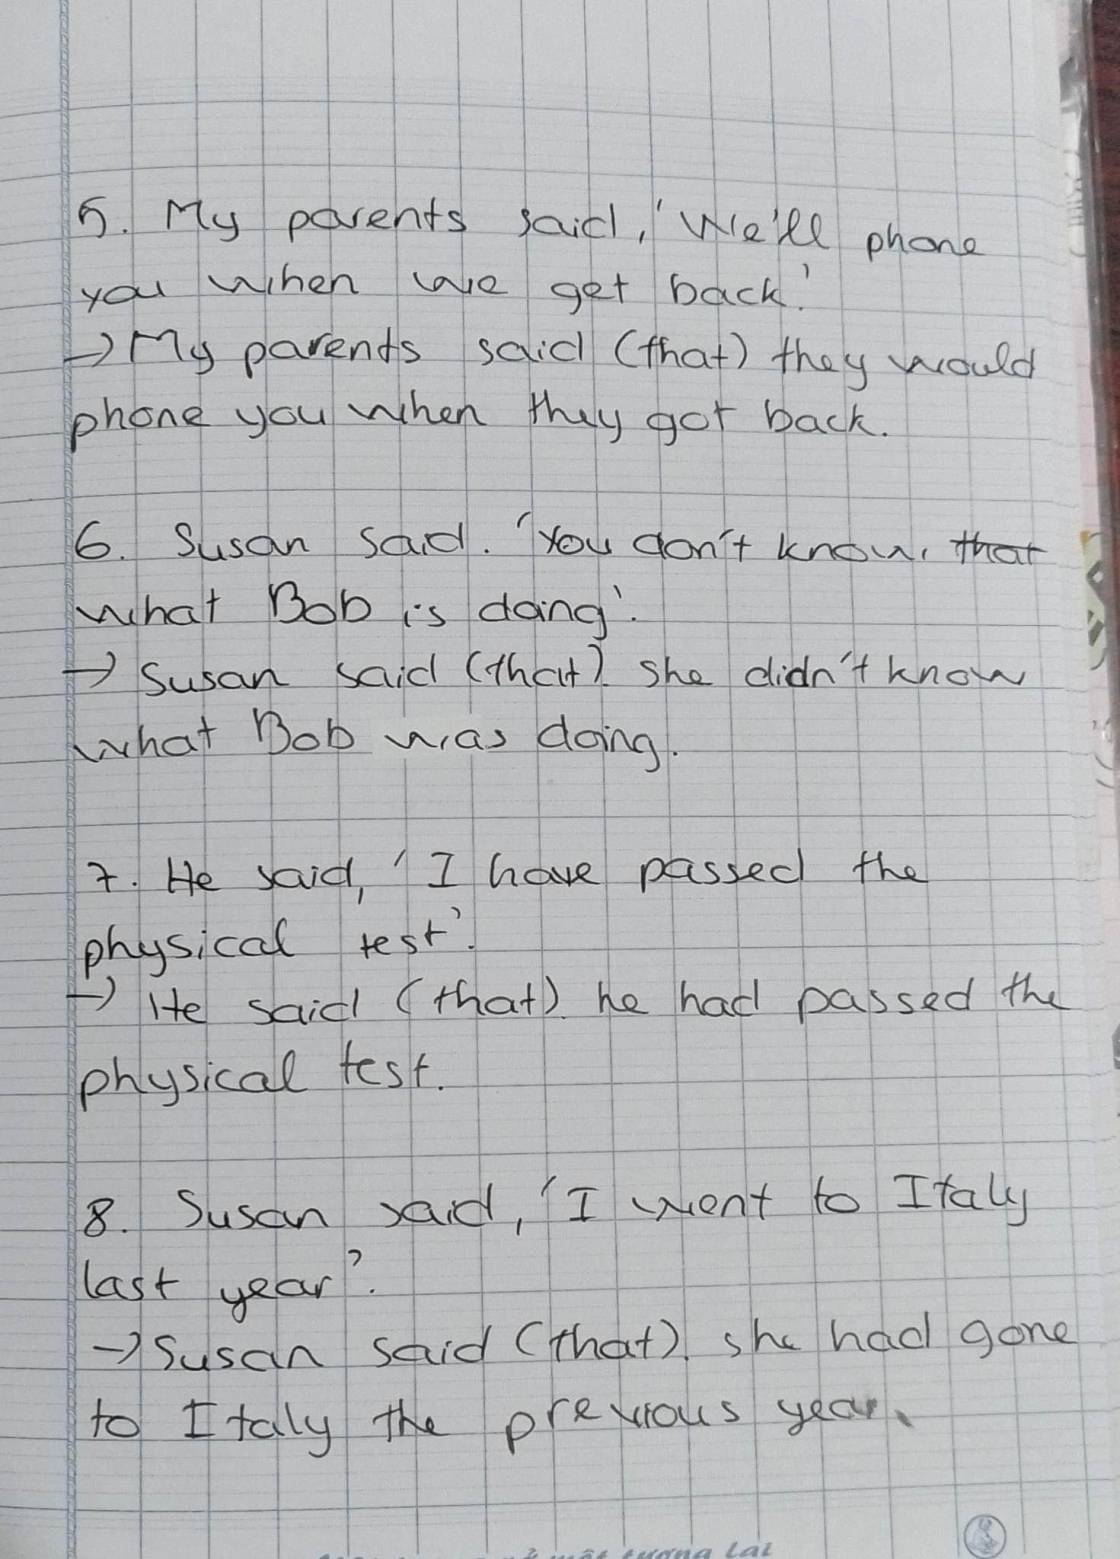 5. My parents said, 'We'll phone
you when we get back.'
→ My parents said (that) they would
phone you when they got back.
6. Susan said. 'You don't know, that
what Bob is doing'.
→ Susan said (that) she didn't know
what Bob was doing.
7. He said, 'I have passed the
physical test'.
→ He said (that) he had passed the
physical test.
8. Susan said, 'I went to Italy
last year'.
→ Susan said (that) she had gone
to Italy the previous year.
tương lai